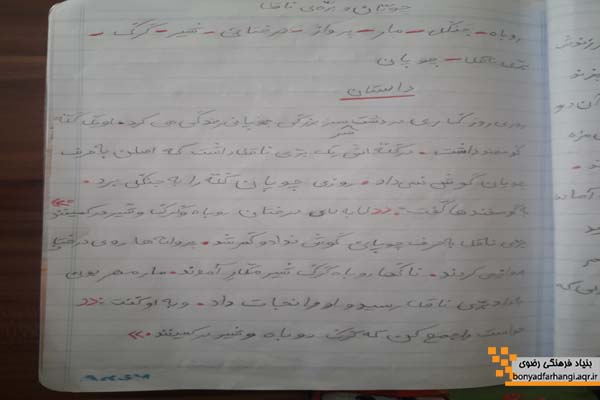 چوپان و بره‌ی ناقلا
روباه - جنگل - مار - پرواز - درختان - شیر - گرگ -
بره‌ی ناقلا - چوپان
داستان
روزی روزگاری در دشت سبز بزرگی چوپانی زندگی می کرد. او یک گله
گوسفند داشت. در گله اش یک بره‌ی ناقلا داشت که اصلن به حرف
چوپان گوش نمی داد. روزی چوپان گله را به جنگل برد.
به گوسفند ها گفت: «لا به لای درختان روباه و گرگ و شیر در کمینند»
بره‌ی ناقلا به حرف چوپان گوش نداد و گم شد. پروانه ها روی درختها
پرواز می کردند. ناگهان روباه گرگ شیر مکار آمدند. مار مهربون
به داد بره‌ی ناقلا رسید و او را نجات داد. و به او گفت: «
حواست را جمع کن که گرگ روباه و شیر در کمینند.»
بنیاد فرهنگی رضوی
bonyadfarhangi.aqr.ir